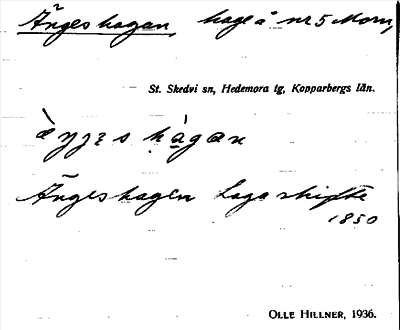 Ängeshagan, hage å nr 5 Morn,
St. Skedvi sn, Hedemora tg, Kopparbergs län.
Ängeshagen Laga skifte
1850
OLLE HILLNER, 1936.